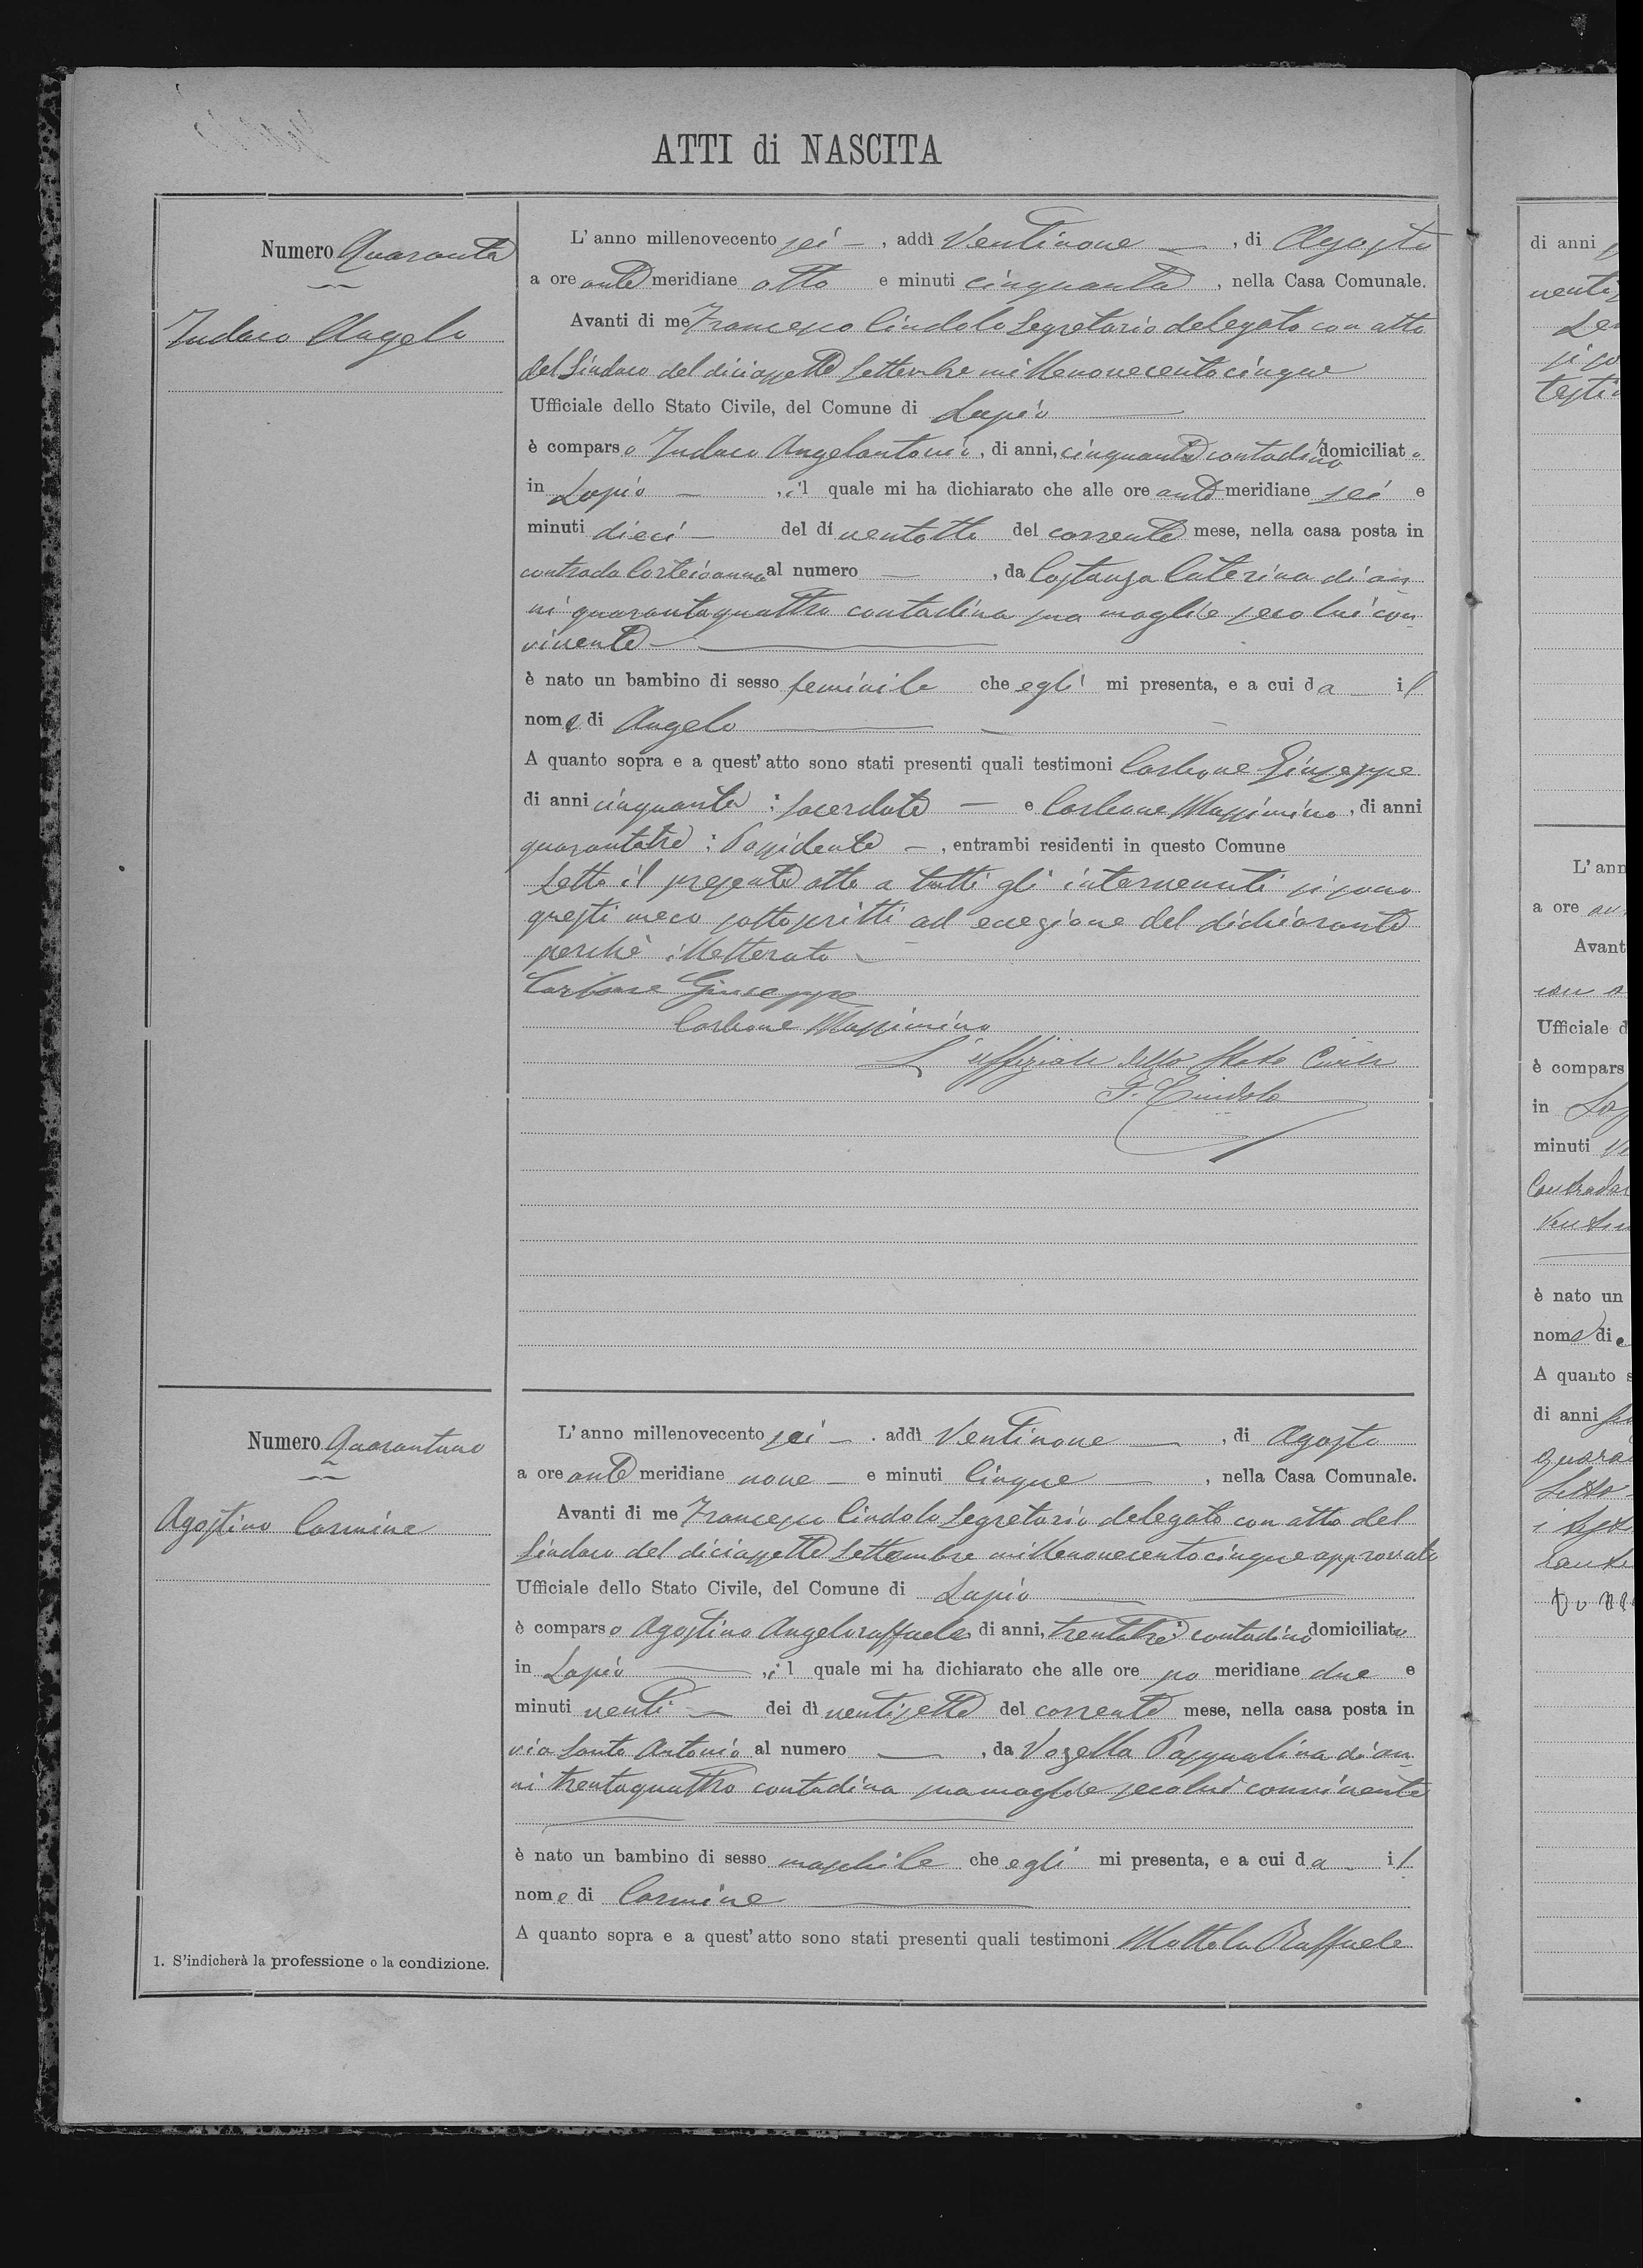 ATTI di NASCITA
Numero Quaranta
Indaco Angelo
L' anno millenovecento sei — , addì Ventinove — , di Agosto
a ore ante meridiane otto e minuti cinquanta , nella Casa Comunale.
Avanti di me Francesco Cindolo Segretario delegato con atto
del Sindaco del diciassette Settembre millenovecentocinque
Ufficiale dello Stato Civile, del Comune di Lapio —
è comparso Indaco Angelantonio, di anni, cinquanta contadino domiciliato
in Lapio — , il quale mi ha dichiarato che alle ore ante meridiane sei e
minuti dieci — del dì ventotto del corrente mese, nella casa posta in
contrada al numero — , da Costanza Caterina di an-
ni quarantaquattro contadina sua moglie seco lui con-
vivente —
è nato un bambino di sesso feminile che egli mi presenta, e a cui da — il
nome di Angelo —
A quanto sopra e a quest' atto sono stati presenti quali testimoni Carbone Giuseppe
di anni cinquanta : sacerdote — e Carbone Massimino, di anni
quarantatre : Possidente — , entrambi residenti in questo Comune
Letto il presente atto a tutti gli intervenuti si sono
questi meco sottoscritti ad ecezione del dichiarante
perchè illetterato —
Carbone Giuseppe
Carbone Massimino
L' uffiziale dello Stato Civile
F. Cindolo
Numero Quarantuno
Agostino Carmine
L' anno millenovecento sei — . addì Ventinove — , di Agosto
a ore ante meridiane nove — e minuti Cinque — , nella Casa Comunale.
Avanti di me Francesco Cindolo Segretario delegato con atto del
Sindaco del diciassette Settembre millenovecentocinque approvato
Ufficiale dello Stato Civile, del Comune di Lapio —
è comparso Agostino Angeloraffaele di anni, trentatre contadino domiciliato
in Lapio — , il quale mi ha dichiarato che alle ore po meridiane due e
minuti venti — dei dì ventisette del corrente mese, nella casa posta in
via Santo Antonio al numero — , da Vozella Pasqualina di an-
ni trentaquattro contadina sua moglie seco lui convivente
è nato un bambino di sesso maschile che egli mi presenta, e a cui da — il
nome di Carmine —
A quanto sopra e a quest' atto sono stati presenti quali testimoni Mottola Raffaele
1. S'indicherà la professione o la condizione.
di anni
L' ann
a ore
Avant
Ufficiale d
è compars
in
minuti
Contrada
è nato un
nome di
A quanto s
di anni